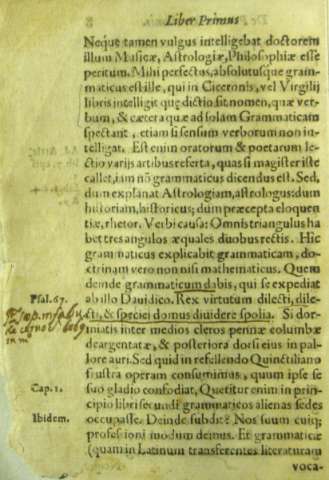 Liber Primus
Neque tamen vulgus intelligebat doctorem
illum Musicæ, Astrologiæ, Philosophiæ esse
peritum. Mihi perfectus, absolutusque gram-
maticus est ille, qui in Ciceronis, vel Virgilij
libris intelligit quę dictio sit nomen, quæ ver-
bum, & cætera quæ ad solam Grammaticam
spectant, etiam si sensum verborum non in-
telligat. Est enim oratorum & poetarum le-
ctio varijs artibus referta, quas si magister iste
callet, iam nō grammaticus dicendus est. Sed,
dum explanat Astrologiam, astrologus: dum
historiam, historicus; dum præcepta eloquen
tiæ, rhetor. Verbi causa: Omnis triangulus ha
bet tres angulos æquales duobus rectis. Hic
grammaticus explicabit grammaticam, do-
ctrinam vero non nisi mathematicus. Quem
deinde grammaticum dabis, qui se expediat
ab illo Dauidico. Rex virtutum dilecti, dile-
cti, & speciei domus diuidere spolia. Si dor-
miatis inter medios cleros pennæ columbæ
deargentatæ, & posteriora dorsi eius in pal-
lore auri. Sed quid in refellendo Quinctiliano
frustra operam consumimus, quum ipse se
suo gladio confodiat, Queritur enim in prin-
cipio libri secundi grammaticos alienas sedes
occupasse. Deinde subdit? Nos suum cuiq;
professioni modum demus. Et grammaticæ
(quam in Latinum transferentes literaturam
voca-
Psal. 67.
Cap. 1.
Ibidem.